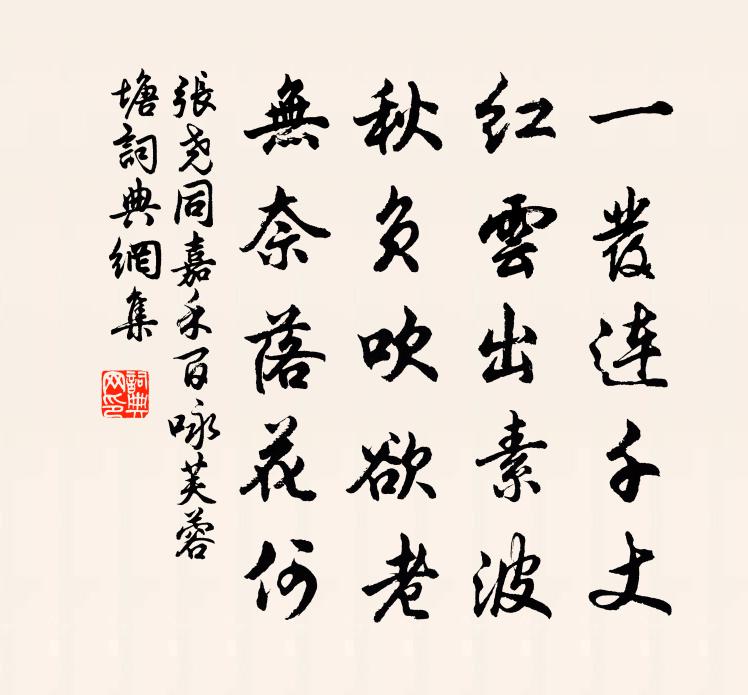 一發連千丈
紅雲出素波
秋吹欲老
無奈落花何
張堯同嘉禾百咏芙蓉
塘詞典網集
詞典
网印